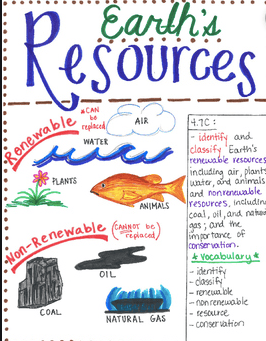 Earth's
Resources
Renewable
*CAN
be
replaced
AIR
WATER
PLANTS
ANIMALS
Non-Renewable
(CANNOT be
replaced)
COAL
OIL
NATURAL GAS
4.7C:
- identify and
classify Earth's
renewable resources
including air, plants
water, and animals
and nonrenewable
resources, includin
coal, oil, and natural
gas; and the
importance of
conservation.
*Vocabulary*
- identify
- classify
- renewable
- nonrenewable
- resource
- conservation